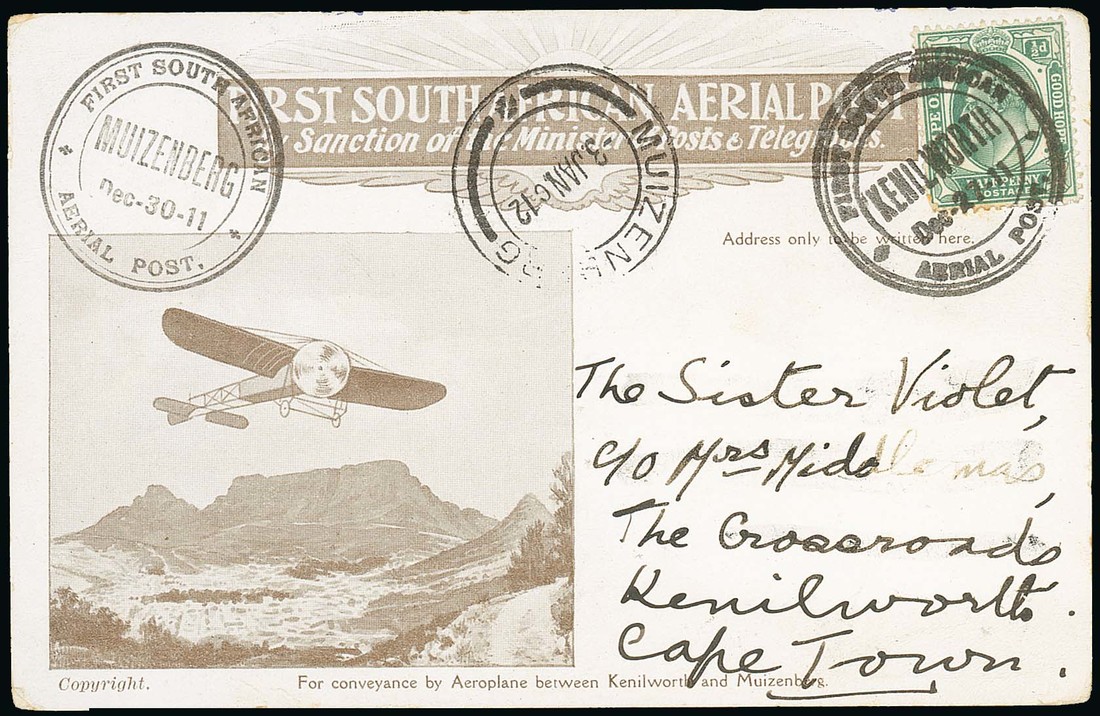 FIRST SOUTH AFRICAN AERIAL POST
By Sanction of the Minister of Posts & Telegraphs.
FIRST SOUTH AFRICAN
MUIZENBERG
Dec-30-11
AERIAL POST.
MUIZENBERG
3 JAN 12
FIRST SOUTH AFRICAN
KENILWORTH
AERIAL POST
½d
GOOD HOPE
POSTAGE
Address only to be written here.
The Sister Violet,
c/o Mrs Middlemas,
The Crossroads
Kenilworth.
Cape Town.
Copyright.
For conveyance by Aeroplane between Kenilworth and Muizenberg.